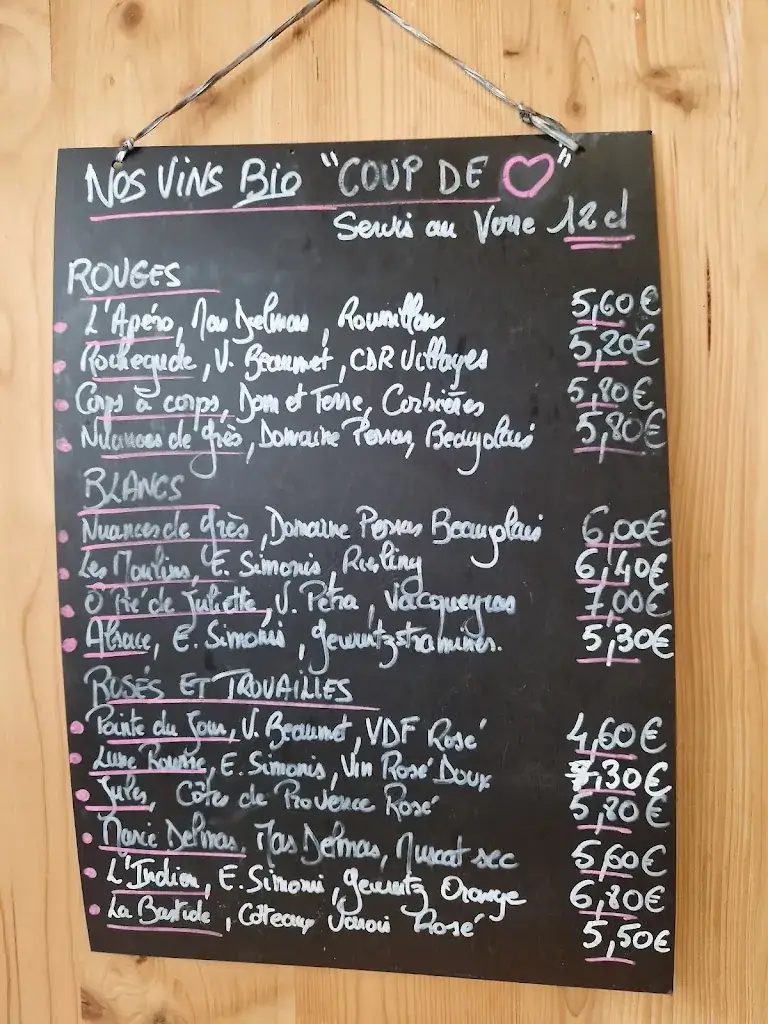 NOS VINS BIO "COUP DE ♡"
Servis au Verre 12 cl
ROUGES
L'Apéro, Mas Delmas, Roussillon 5,60€
Rochegude, V. Beaumet, CDR Villages 5,20€
Corps à corps, Dom et Terre, Corbières 5,80€
Nuances de Grès, Domaine Perras, Beaujolais 5,80€
BLANCS
Nuances de Grès, Domaine Perras Beaujolais 6,00€
Les Moulins, E. Simonis, Riesling 6,40€
O Pré de Juliette, V. Petra, Vacqueyras 7,00€
Alsace, E. Simonis, gewurtzstraminer. 5,30€
ROSÉS ET TROUVAILLES
Pointe du Jour, V. Beaumet, VDF Rosé 4,60€
Lune Rousse, E. Simonis, Vin Rosé Doux ,30€
Jules, Côtes de Provence Rosé 5,80€
Marie Delmas, Mas Delmas, Muscat sec 5,60€
L'Indien, E. Simonis, gewurtz Orange 6,80€
La Bastide, Coteaux Varois Rosé 5,50€